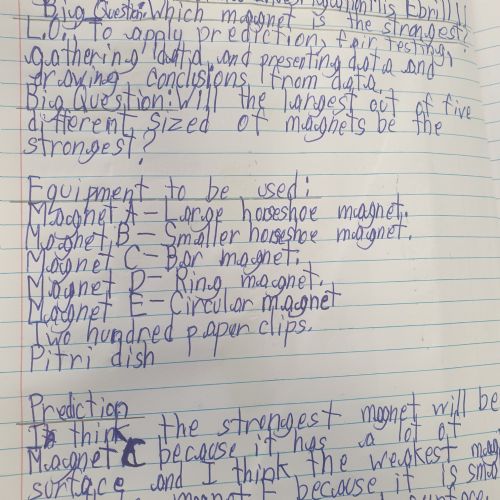 Big Question: Which magnet is the strongest?
L.O.: to apply prediction, fair testing,
gathering data, and presenting data and
drawing conclusions from data.
Big Question: Will the largest out of five
different sized of magnets be the
strongest?
Equipment to be used:
Magnet A - Large horseshoe magnet.
Magnet B - Smaller horseshoe magnet.
Magnet C - Bar magnet.
Magnet D - Ring magnet.
Magnet E - Circular magnet
Two hundred paper clips.
Pitri dish
Prediction
I think the strongest magnet will be
Magnet C because it has a lot of
surface and I think the weakest
magnet because it is